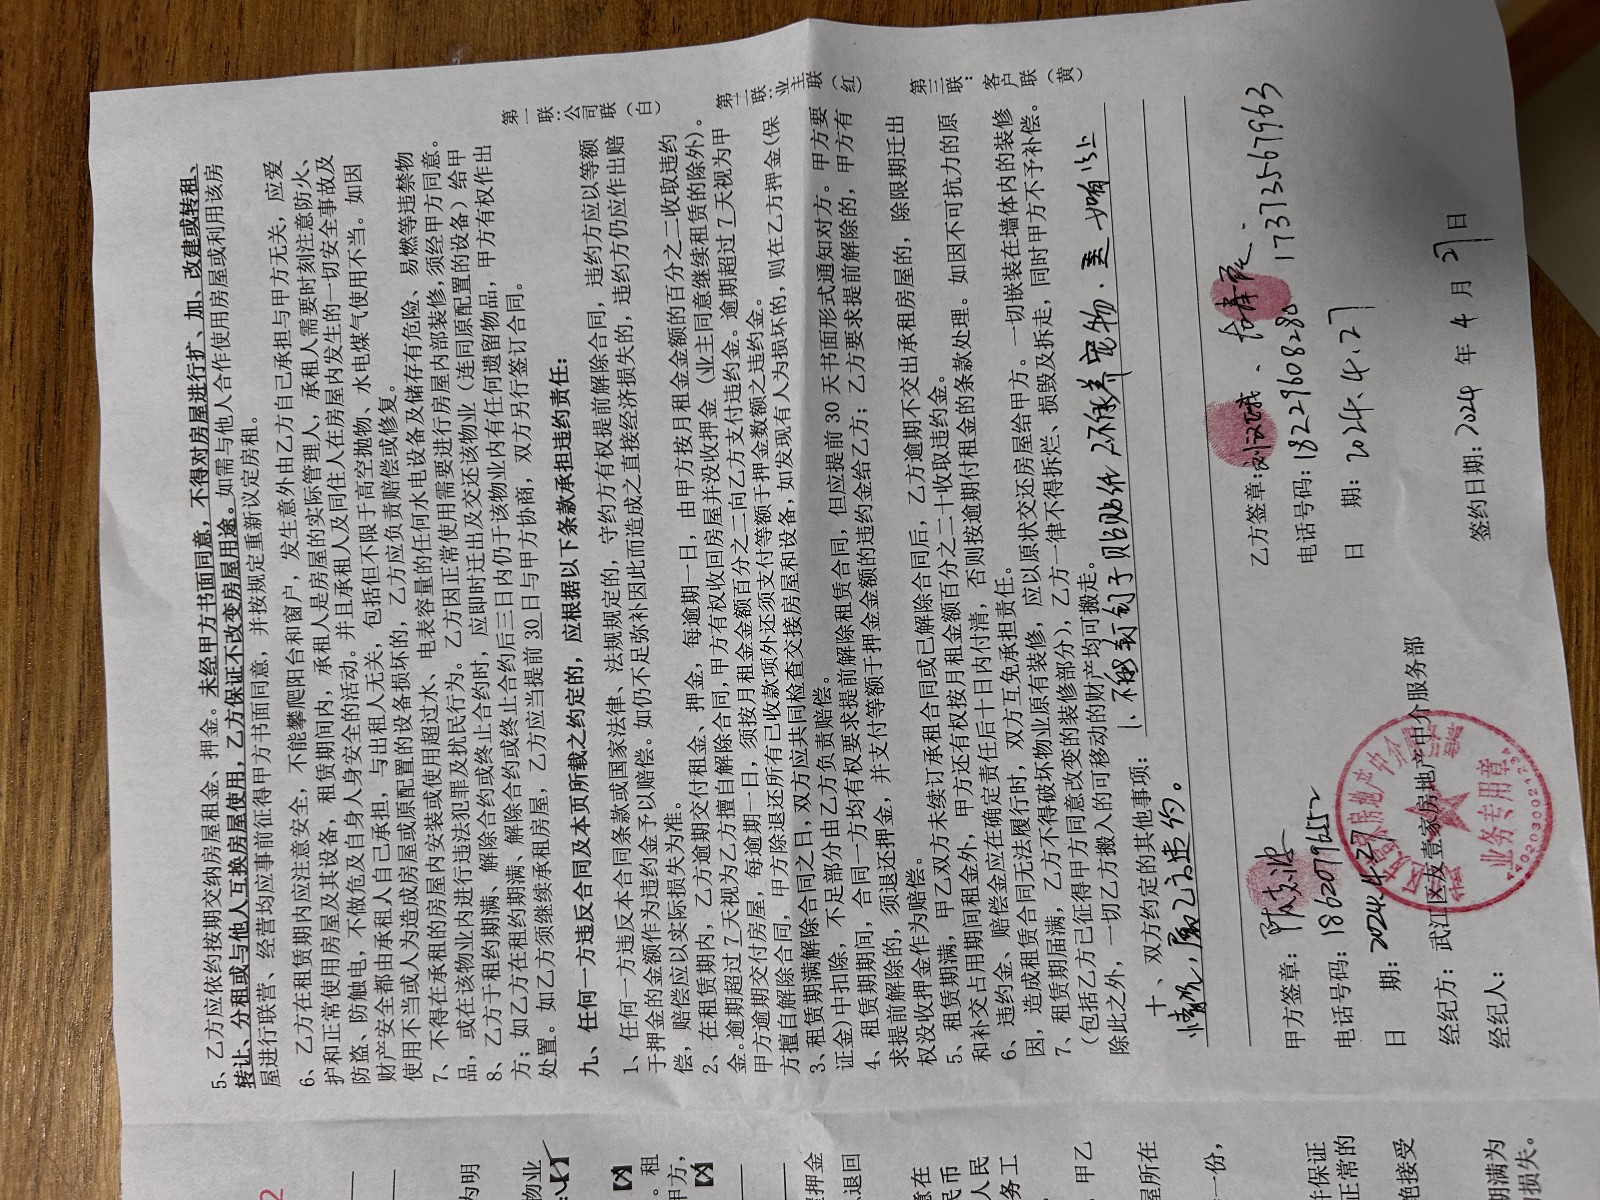 5、乙方应依约按期交纳房屋租金、押金。未经甲方书面同意，不得对房屋进行扩、加、改建或转租、
转让、分租或与他人互换房屋使用，乙方保证不改变房屋用途。如需与他人合作使用房屋或利用该房
屋进行联营、经营均应事前征得甲方书面同意，并按规定重新议定房租。
6、乙方在租赁期内应注意安全，不能攀爬阳台和窗户，发生意外由乙方自己承担与甲方无关，应爱
护和正常使用房屋及其设备，租赁期间内，承租人是房屋的实际管理人，承租人需要时刻注意防火、
防盗、防触电，不做危及自身人身安全的活动。并且承租人及同住人在房屋内发生的一切安全事故及
财产安全都由承租人自己承担，与出租人无关，包括但不限于高空抛物、水电煤气使用不当。如因
使用不当或人为造成房屋或原配置的设备损坏的，乙方应负责赔偿或修复。
7、不得在承租的房屋内安装或使用超过水、电表容量的任何水电设备及储存有危险、易燃等违禁物
品，或在该物业内进行违法犯罪及扰民行为。乙方因正常使用需要进行房屋内部装修，须经甲方同意。
8、乙方于租约期满、解除合约或终止合约时，应即时迁出及交还该物业（连同原配置的设备）给甲
方；如乙方在租约期满、解除合约或终止合约后三日内仍于该物业内有任何遗留物品，甲方有权作出
处置。如乙方须继续承租房屋，乙方应当提前 30 日与甲方协商，双方另行签订合同。
九、任何一方违反合同及本页所载之约定的，应根据以下条款承担违约责任：
1、任何一方违反本合同条款或国家法律、法规规定的，守约方有权提前解除合同，违约方应以等额
于押金的金额作为违约金予以赔偿。如仍不足弥补因此而造成之直接经济损失的，违约方仍应作出赔
偿，赔偿应以实际损失为准。
2、在租赁期内，乙方逾期交付租金、押金，每逾期一日，由甲方按月租金金额的百分之二收取违约
金。逾期超过 7 天视为乙方擅自解除合同，甲方有权收回房屋并没收押金（业主同意继续租赁的除外）。
甲方逾期交付房屋，每逾期一日，须按月租金金额百分之二向乙方支付违约金。逾期超过 7 天视为甲
方擅自解除合同，甲方除退还所有已收款项外还须支付等额于押金数额之违约金。
3、租赁期满解除合同之日，双方应共同检查交接房屋和设备，如发现有人为损坏的，则在乙方押金（保
证金）中扣除，不足部分由乙方负责赔偿。
4、租赁期期间，合同一方均有权要求提前解除租赁合同，但应提前 30 天书面形式通知对方。甲方要
求提前解除的，须退还押金，并支付等额于押金金额的违约金给乙方；乙方要求提前解除的，甲方有
权没收押金作为赔偿。
5、租赁期满，甲乙双方未续订承租合同或已解除合同后，乙方逾期不交出承租房屋的，除限期迁出
和补交占用期间租金外，甲方还有权按月租金额百分之二十收取违约金。
6、违约金、赔偿金应在确定责任后十日内付清，否则按逾期付租金的条款处理。如因不可抗力的原
因，造成租赁合同无法履行时，双方互免承担责任。
7、租赁期届满，乙方不得破坏物业原有装修，应以原状交还房屋给甲方。一切嵌装在墙体内的装修
（包括乙方已征得甲方同意改变的装修部分），乙方一律不得拆烂、损毁及拆走，同时甲方不予补偿。
除此之外，一切乙方搬入的可移动的财产均可搬走。
十、双方约定的其他事项：1、不能钉钉子贴贴纸 2不能养宠物．遇
情况，属乙方违约。
第一联：公司联（白）
第二联：业主联（红）
第三联：客户联（黄）
甲方签章：
电话号码：1862079652
日 期：2024.4.27
经纪方：武江区友壹家房地产中介服务部
经纪人：
业务专用章
乙方签章：
电话号码：18229608280 17373567963
日 期：2024.4.27
签约日期：2024 年 4 月 27 日